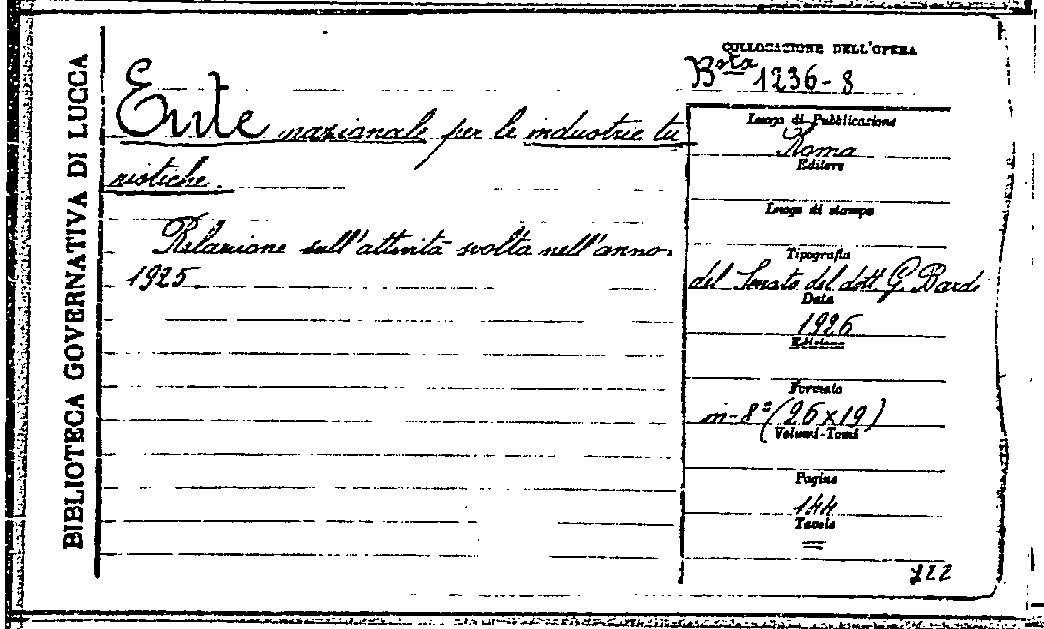 BIBLIOTECA GOVERNATIVA DI LUCCA
Ente nazionale per le industrie tu
ristiche.
Relazione sull'attività svolta nell'anno
1925.
COLLOCAZIONE DELL'OPERA
Bsta 1236-8
Luogo di Pubblicazione
Roma
Editore
Luogo di stampa
Tipografia
del Senato del dott. G. Bardi
Data
1926
Edizione
Formato
in-8° (26x19)
Volumi-Tomi
Pagine
144
Tavole
=